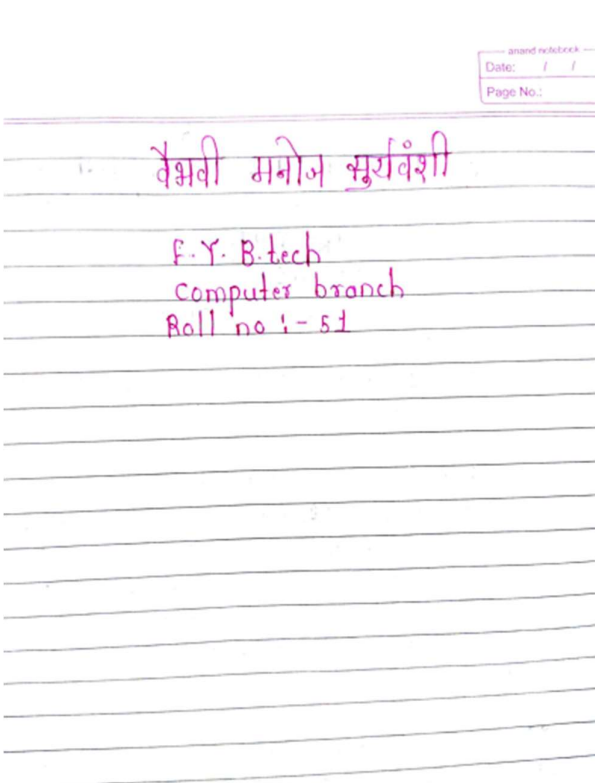 anand notebook
Date: / /
Page No.:
वैभवी मनोज सुर्यवंशी
F.Y. B.tech
Computer branch
Roll no :- 51